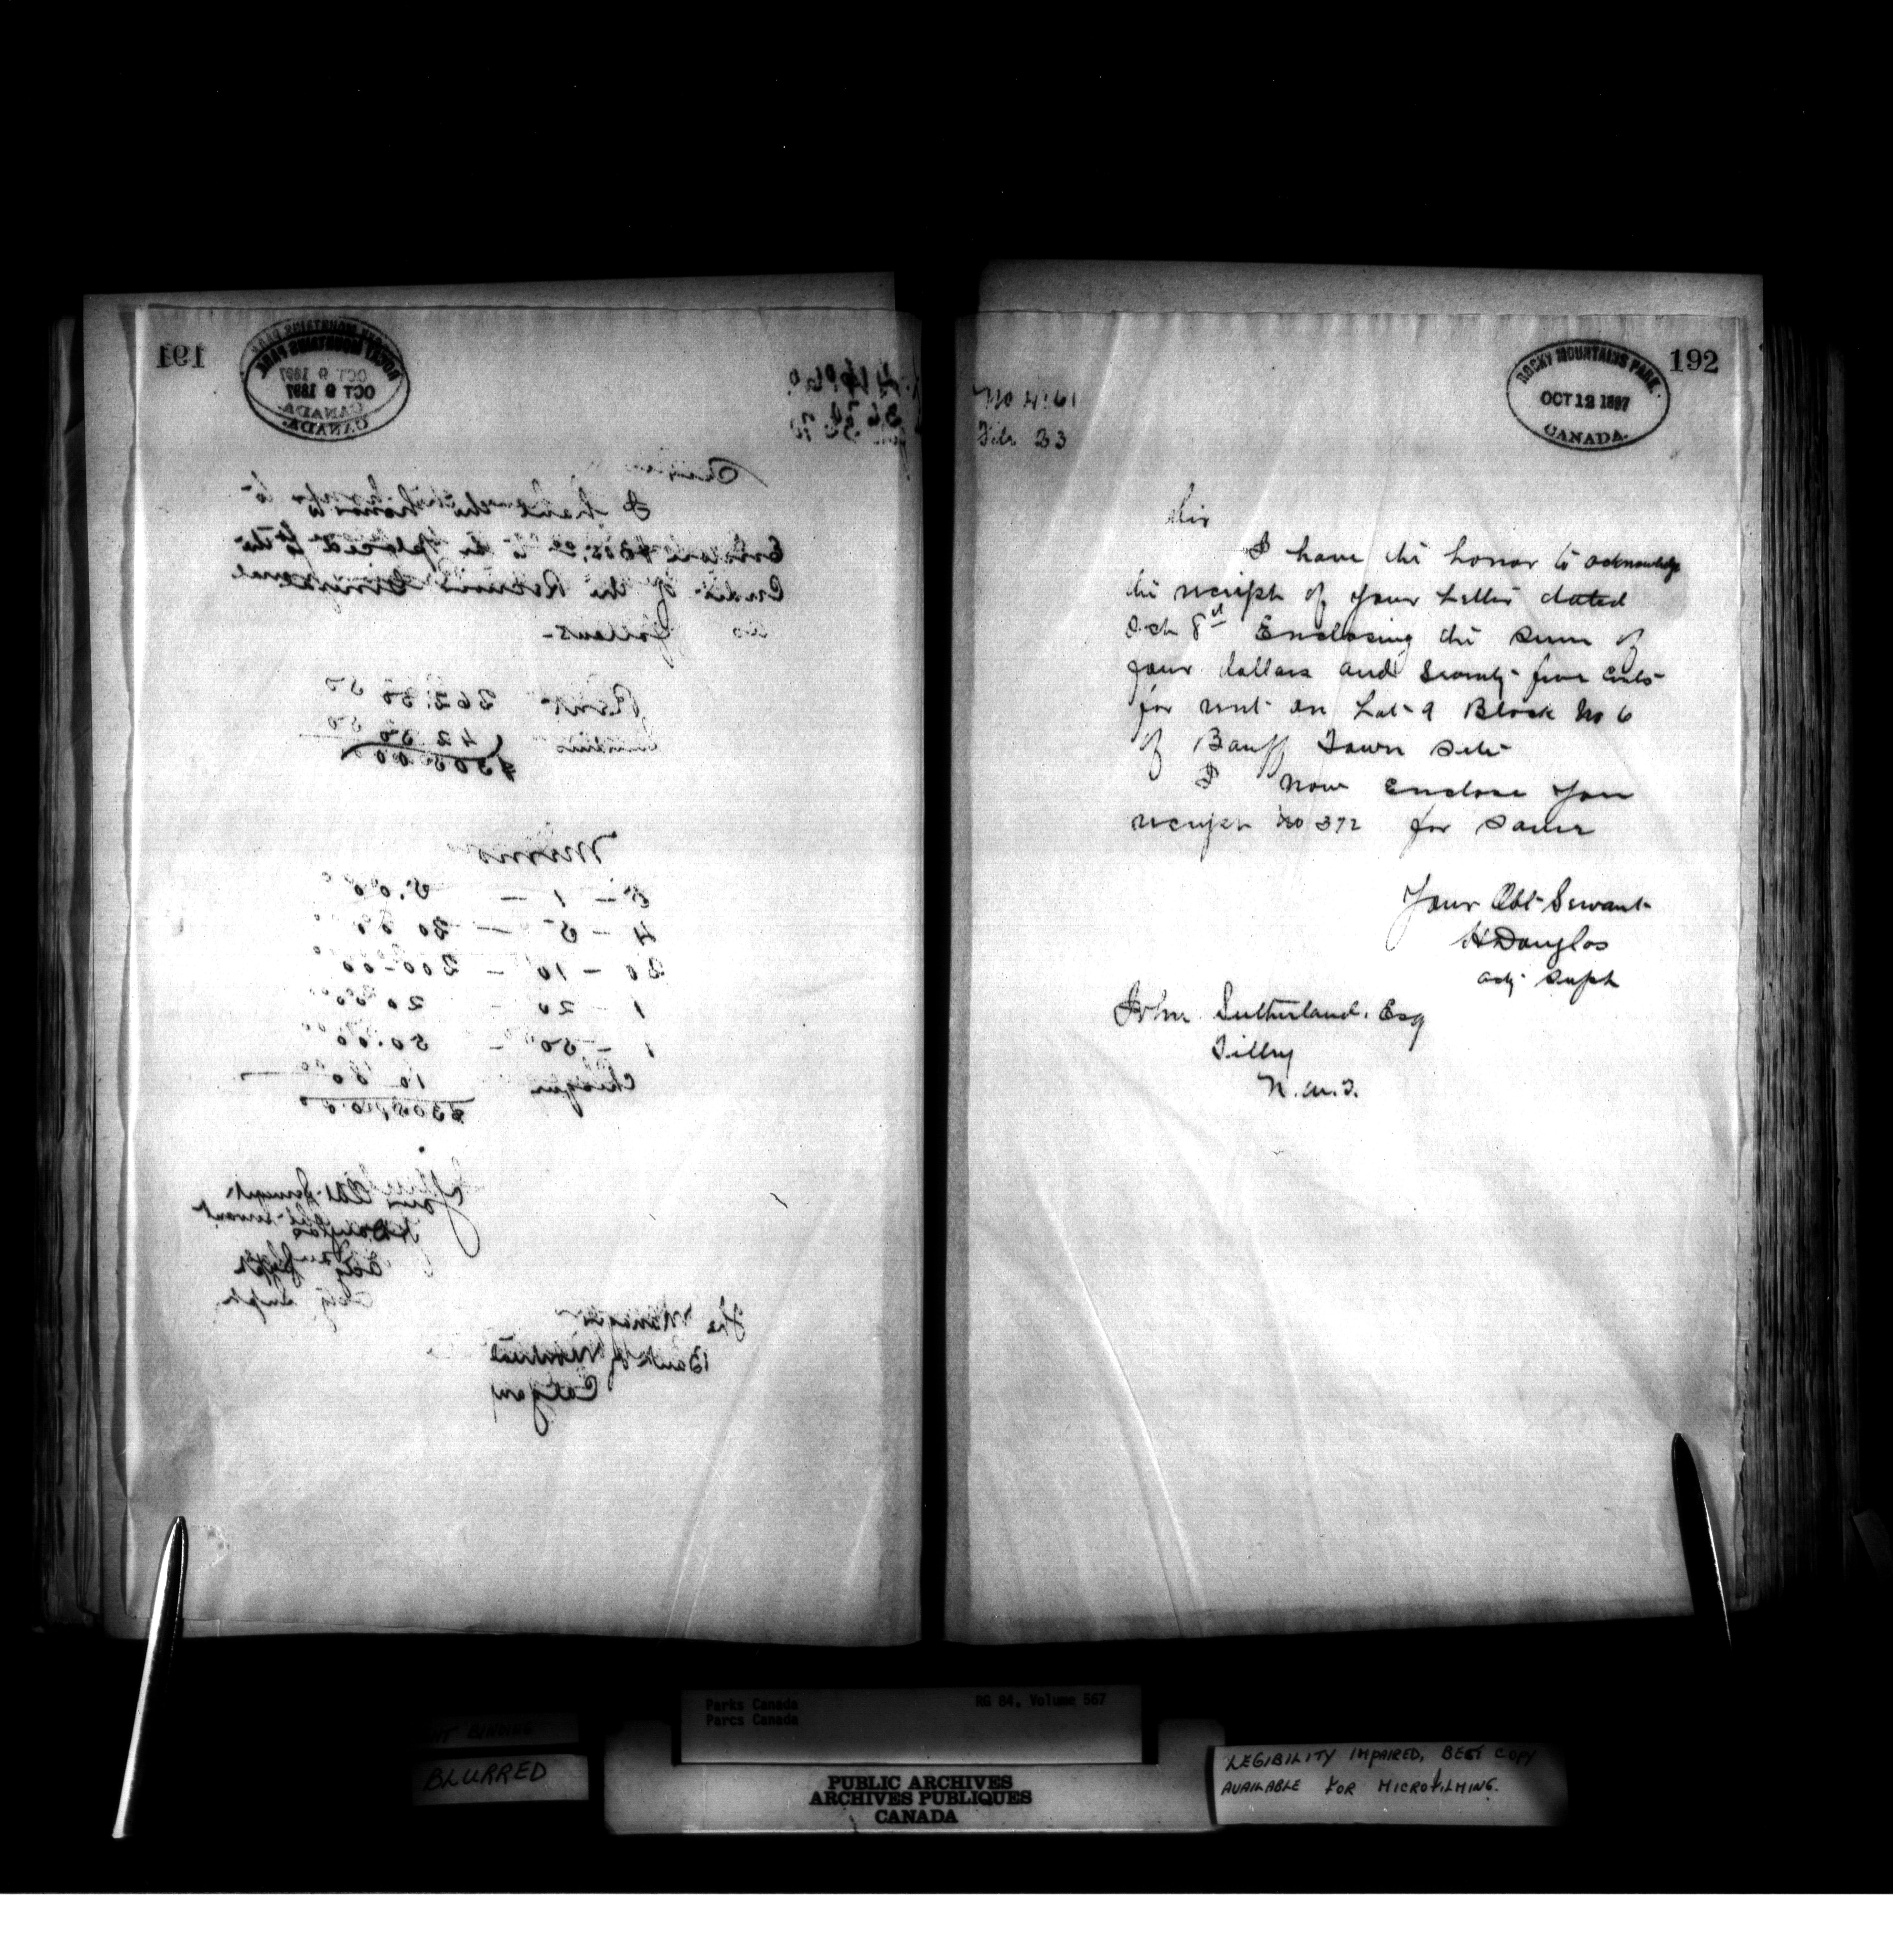 191
ROCKY MOUNTAINS PARK.
OCT 9 1897
CANADA.
Sir
I have the honor to
Enclose to be placed to the
Credit of the Receiver General
as follows-
Rent 262.50
42.50
$305.00
Memo
5 - 1 - 5.00
4 - 5 - 20.00
20 - 10 - 200.00
1 - 20 - 20.00
1 - 50 - 50.00
Cheque 10.00
$305.00
Your Obt Servant
H Douglas
Actg Supt
The Manager
Bank of Montreal
Calgary
192
ROCKY MOUNTAINS PARK.
OCT 12 1897
CANADA.
No 4161
File 23
Sir
I have the honor to acknowledge
the receipt of your Letter dated
Oct 8th Enclosing the sum of
four dollars and Seventy-five cents
for rent on Lot 9 Block No 6
of Banff Town Site
I now Enclose you
receipt No 372 for Same
Your Obt Servant
H Douglas
actg Supt
John Sutherland. Esq
Tilley
N.W.T.
Parks Canada
Parcs Canada
RG 84, Volume 567
BINDING
BLURRED
PUBLIC ARCHIVES
ARCHIVES PUBLIQUES
CANADA
LEGIBILITY IMPAIRED, BEST COPY
AVAILABLE FOR MICROFILMING.